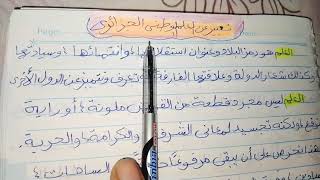 تعبير عن العلم الوطني الجزائري
العلم هو رمز البلاد وعنوان استقلالها وانتمائها وسيادتها
وكذلك شعار الدولة وعلامتها الفارقة تعرف وتتميز عن الدول الأخرى
العلم ليس مجرد قطعة من القماش ملونة أو راية
ترفع ولكنه تجسيد لمعاني الشرف والكرامة والحرية
لهذا نحرص على أن يبقى مرفوعا